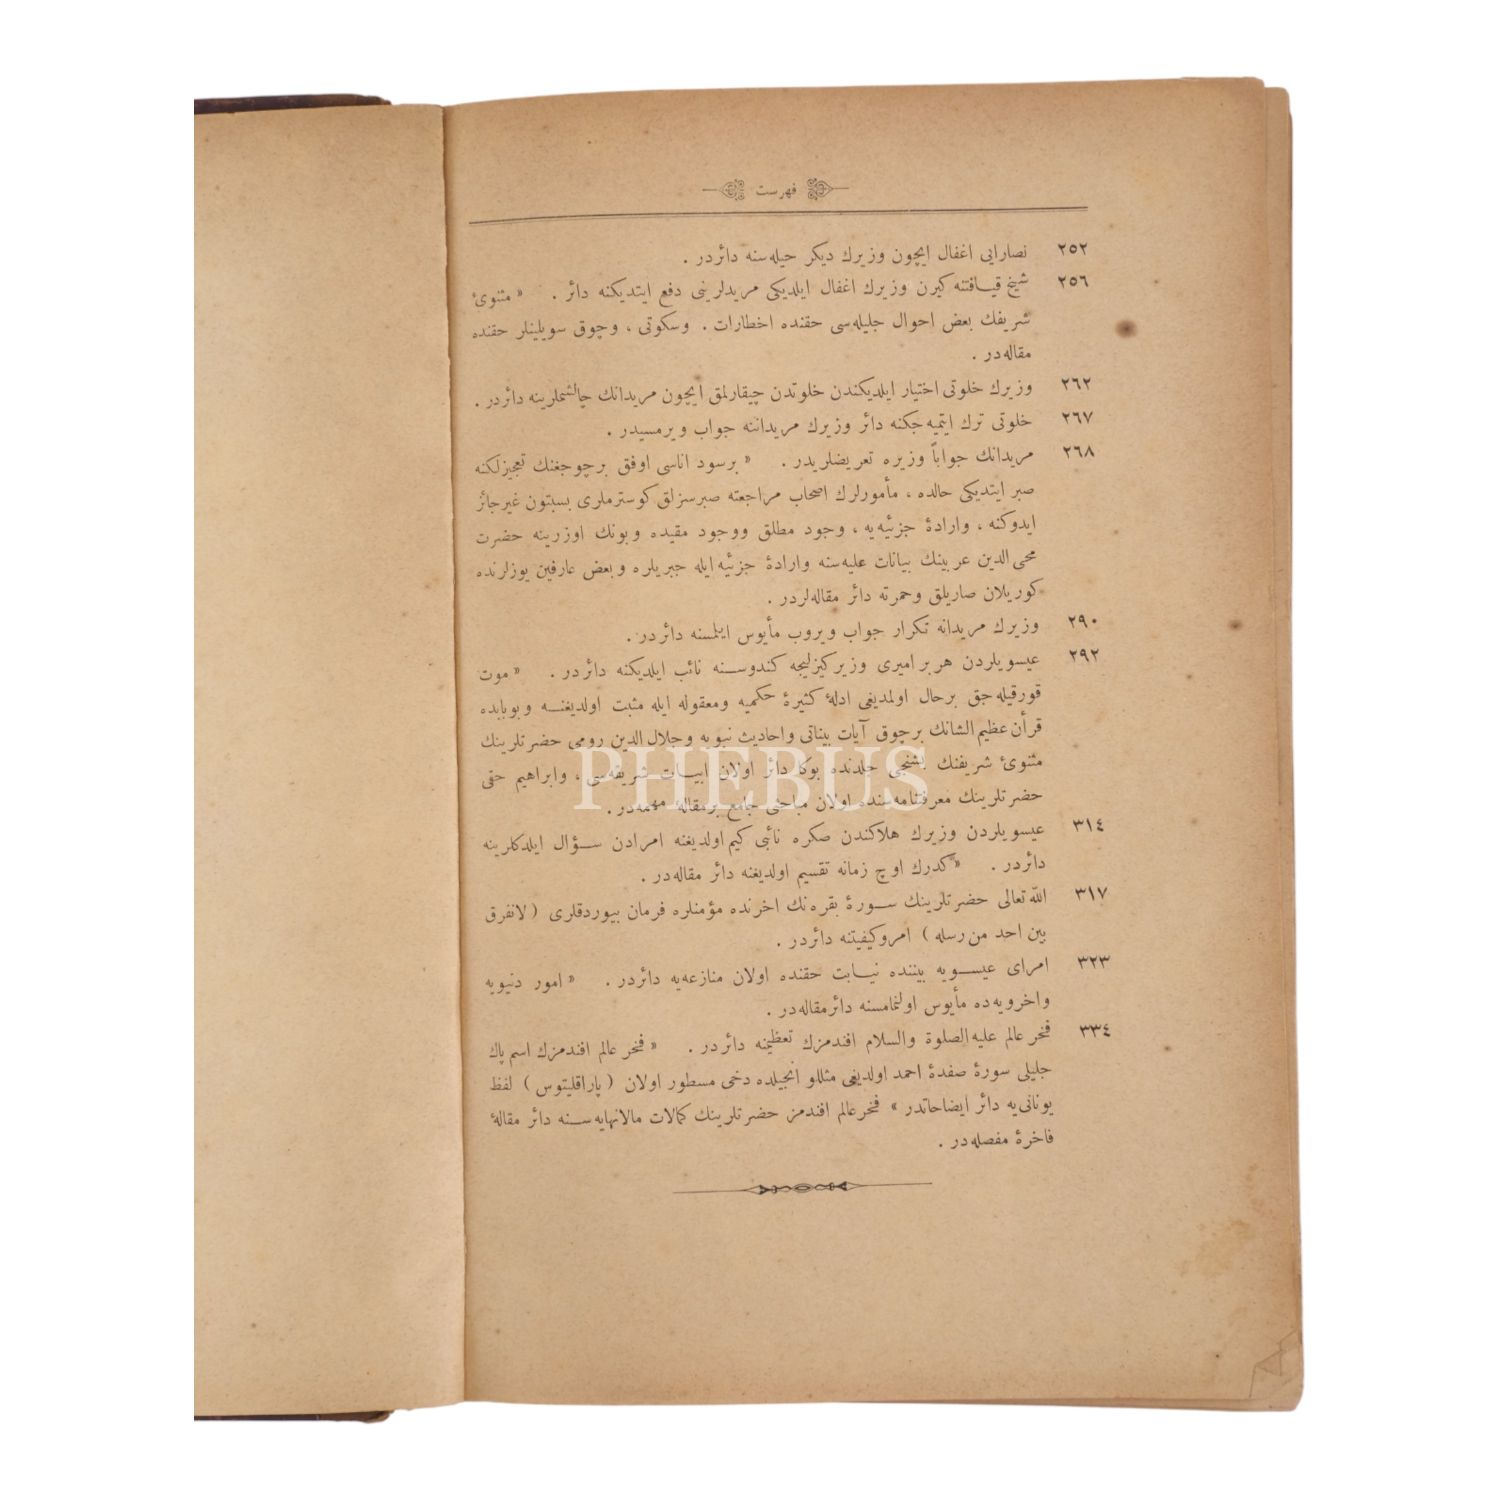 فهرست
٢٥٢ نصارایی اغفال ایچون وزیرك دیكر حیله‌سنه دائردر .
٢٥٦ شیخ قیافتنه كیرن وزیرك اغفال ایلدیكی مریدلرینی دفع ایتدیكنه دائر . « مثنویٔ
شریفك بعض احوال جلیله‌سی حقنده اخطارات . وسكوتی ، وچوق سویلینلر حقنده
مقاله‌در .
٢٦٢ وزیرك خلوتی اختیار ایلدیكندن خلوتدن چیقارلمق ایچون مریدانك چالشملرینه دائردر .
٢٦٧ خلوتی ترك ایتمیه‌جكنه دائر وزیرك مریداننه جواب ویرمسیدر .
٢٦٨ مریدانك جواباً وزیره تعریضلریدر . « برسود اناسی اوفق برچوجغنك تعجیزلكنه
صبر ایتدیكی حالده ، مأمورلرك اصحاب مراجعته صبرسزلق كوسترملری بسبتون غیرجائز
ایدوكنه ، وارادهٔ جزئیه‌یه ، وجود مطلق ووجود مقیده وبونك اوزرینه حضرت
محی الدین عربینك بیانات علیه‌سنه وارادهٔ جزئیه ایله جبریلره وبعض عارفین یوزلرنده
كوریلان صاریلق وحمرته دائر مقاله‌لردر .
٢٩٠ وزیرك مریدانه تكرار جواب ویروب مأیوس ایلمسنه دائردر .
٢٩٢ عیسویلردن هربرامیری وزیر كیزلیجه كندوسنه نائب ایلدیكنه دائردر . « موت
قورقیله‌جق برحال اولمدیغی ادلهٔ كثیرهٔ حكمیه ومعقوله ایله مثبت اولدیغنه وبوبابده
قرأن عظیم الشانك برچوق آیات بیناتی واحادیث نبویه وجلال الدین رومی حضرتلرینك
مثنویٔ شریفنك بشنجی جلدنده بوكا دائر اولان ابیات شریفه‌سی ، وابراهیم حقی
حضرتلرینك معرفتنامه‌سنده اولان مباحثی جامع برمقالهٔ مهمه‌در .
٣١٤ عیسویلردن وزیرك هلاكندن صكره نائبی كیم اولدیغنه امرادن سؤال ایلدكلرینه
دائردر . « كدرك اوچ زمانه تقسیم اولدیغنه دائر مقاله‌در .
٣١٧ الله تعالی حضرتلرینك سورهٔ بقره‌نك اخرنده مؤمنلره فرمان بیوردقلری ( لانفرق
بین احد من رسله ) امروكیفیتنه دائردر .
٣٢٣ امرای عیسویه بیننده نیابت حقنده اولان منازعه‌یه دائردر . « امور دنیویه
واخرویه‌ده مأیوس اولنمامسنه دائرمقاله‌در .
٣٣٤ فخرعالم علیه الصلوة والسلام افندمزك تعظیمنه دائردر . « فخرعالم افندمزك اسم پاك
جلیلی سورهٔ صفده احمد اولدیغی مثللو انجیلده دخی مسطور اولان ( پاراقلیتوس ) لفظ
یونانی‌یه دائر ایضاحاتدر » فخرعالم افندمز حضرتلرینك كمالات مالانهایه‌سنه دائر مقالهٔ
فاخرهٔ مفصله‌در .
PHEBUS